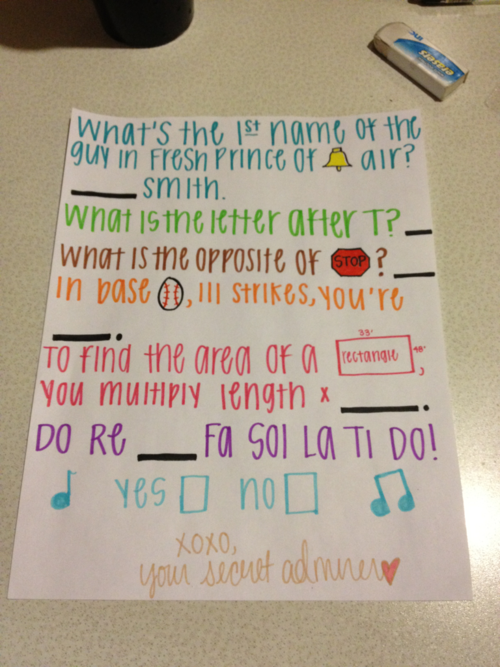 What's the 1st name of the
guy in Fresh Prince of air?
smith.
What is the letter after T?
What is the opposite of STOP?
In base , III strikes, you're
.
33'
To find the area of a rectangle 48',
you multiply length x .
DO Re Fa Sol La Ti DO!
yes no
xoxo,
your secret admirer
erasers